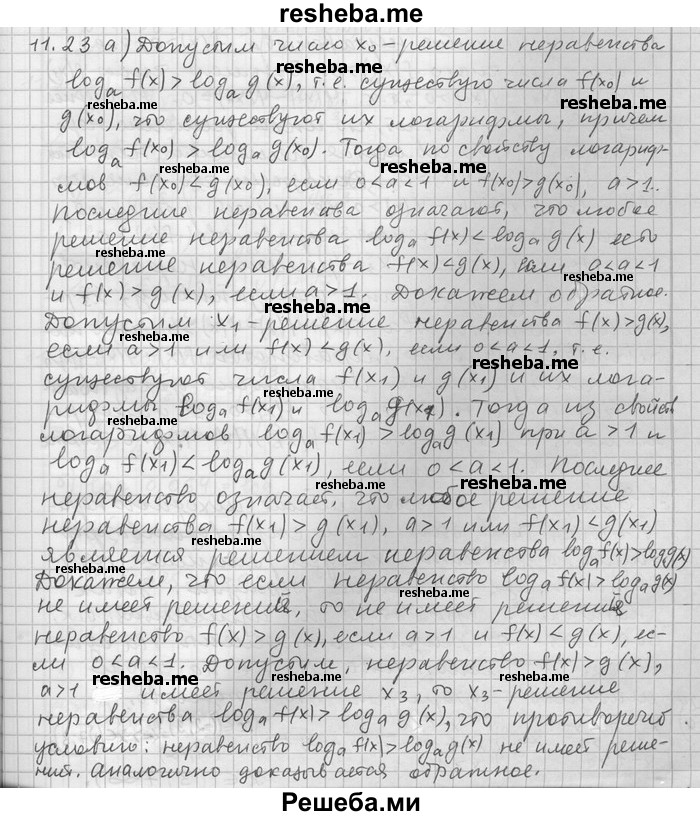 resheba.me
11.23 а) Допустим число x₀-решение неравенства
logₐ f(x) > logₐ g(x), т.е. существуют числа f(x₀) и
g(x₀), что существуют их логарифмы, причем
logₐ f(x₀) > logₐ g(x₀). Тогда по свойству логариф-
мов f(x₀) < g(x₀), если 0<a<1 и f(x₀)>g(x₀), a>1.
Последние неравенства означают, что любое
решение неравенства logₐ f(x) < logₐ g(x) есть
решение неравенства f(x)<g(x), если 0<a<1
и f(x) > g(x), если a>1. Докажем обратное.
Допустим x₁-решение неравенства f(x)>g(x),
если a>1 или f(x)<g(x), если 0<a<1, т.е.
существуют числа f(x₁) и g(x₁) и их лога-
рифмы logₐ f(x₁) и logₐ g(x₁). Тогда из свойств
логарифмов logₐ f(x₁) > logₐ g(x₁) при a>1 и
logₐ f(x₁) < logₐ g(x₁), если 0<a<1. Последнее
неравенство означает, что любое решение
неравенства f(x₁) > g(x₁), a>1 или f(x₁) < g(x₁)
является решением неравенства logₐ f(x)>log g(x)
Докажем, что если неравенство logₐ f(x)>logₐ g(x)
не имеет решений, то не имеет решений
неравенство f(x) > g(x), если a>1 и f(x) < g(x), ес-
ли 0<a<1. Допустим, неравенство f(x)>g(x),
a>1 имеет решение x₃, то x₃-решение
неравенства logₐ f(x)>logₐ g(x), что противоречит
условию: неравенство logₐ f(x)>logₐ g(x) не имеет реше-
ния. Аналогично доказывается обратное.
Решеба.ми